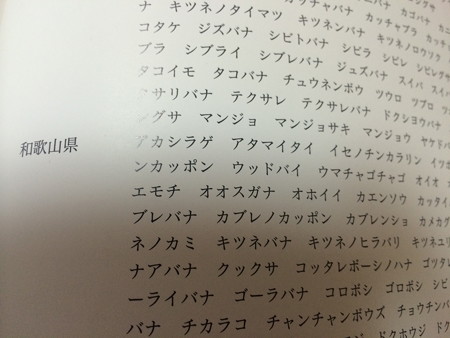 ナ キツネノタイマツ キツネンバナ キツネノロウソク
コタケ ジズバナ シビトバナ シビラ シビレ シビレグサ
ブラ シブライ シブレバナ ジュズバナ スイバ
タコイモ タコバナ チュウネンボウ ツウロ ツブロ
サリバナ テクサレ テクサレバナ ドクショウバナ
グサ マンジョ マンジョサキ マンジョウ ヤケド
和歌山県
アカシラゲ アタマイタイ イセノチンカラリン
ンカッポン ウッドバイ ウマチャゴチャゴ オイオ
エモチ オオスガナ オホイイ カエンソウ カッタイ
ブレバナ カブレノカッポン カブレンショ カメカグ
ネノカミ キツネバナ キツネノヒラバリ キツネユリ
ナアバナ クックサ コッタレボーシノハナ ゴツタレ
ーライバナ ゴーラバナ コロボシ ゴロボシ シビ
バナ チカラコ チャンチャンボウズ チョウチンバ
ドクバナ ドクホウジ